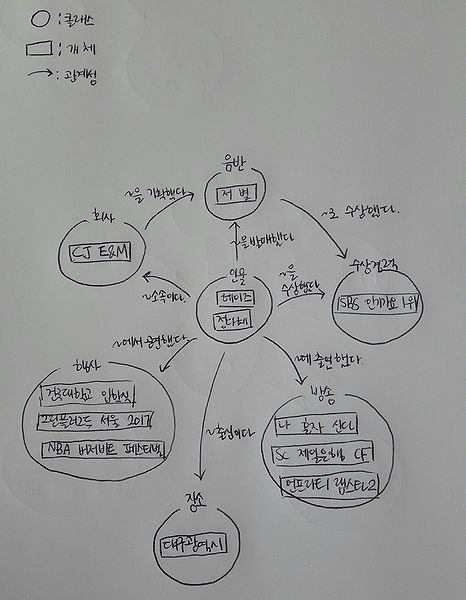 ○ : 클래스
□ : 개체
→ : 관계성
음반
저 별
~을 기획했다.
~로 수상했다.
회사
CJ E&M
~을 발매했다
수상경력
SBS 인기가요 1위
인물
헤이즈
전다혜
~을
수상했다
~소속이다.
~에서 공연했다.
~에 출연했다.
행사
건국대학교 입학식
그린플러그드 서울 2017
NBA 버저비트 페스티벌
방송
나 혼자 산다
SC 제일은행 CF
언프리티 랩스타2
~출신이다.
장소
대구광역시